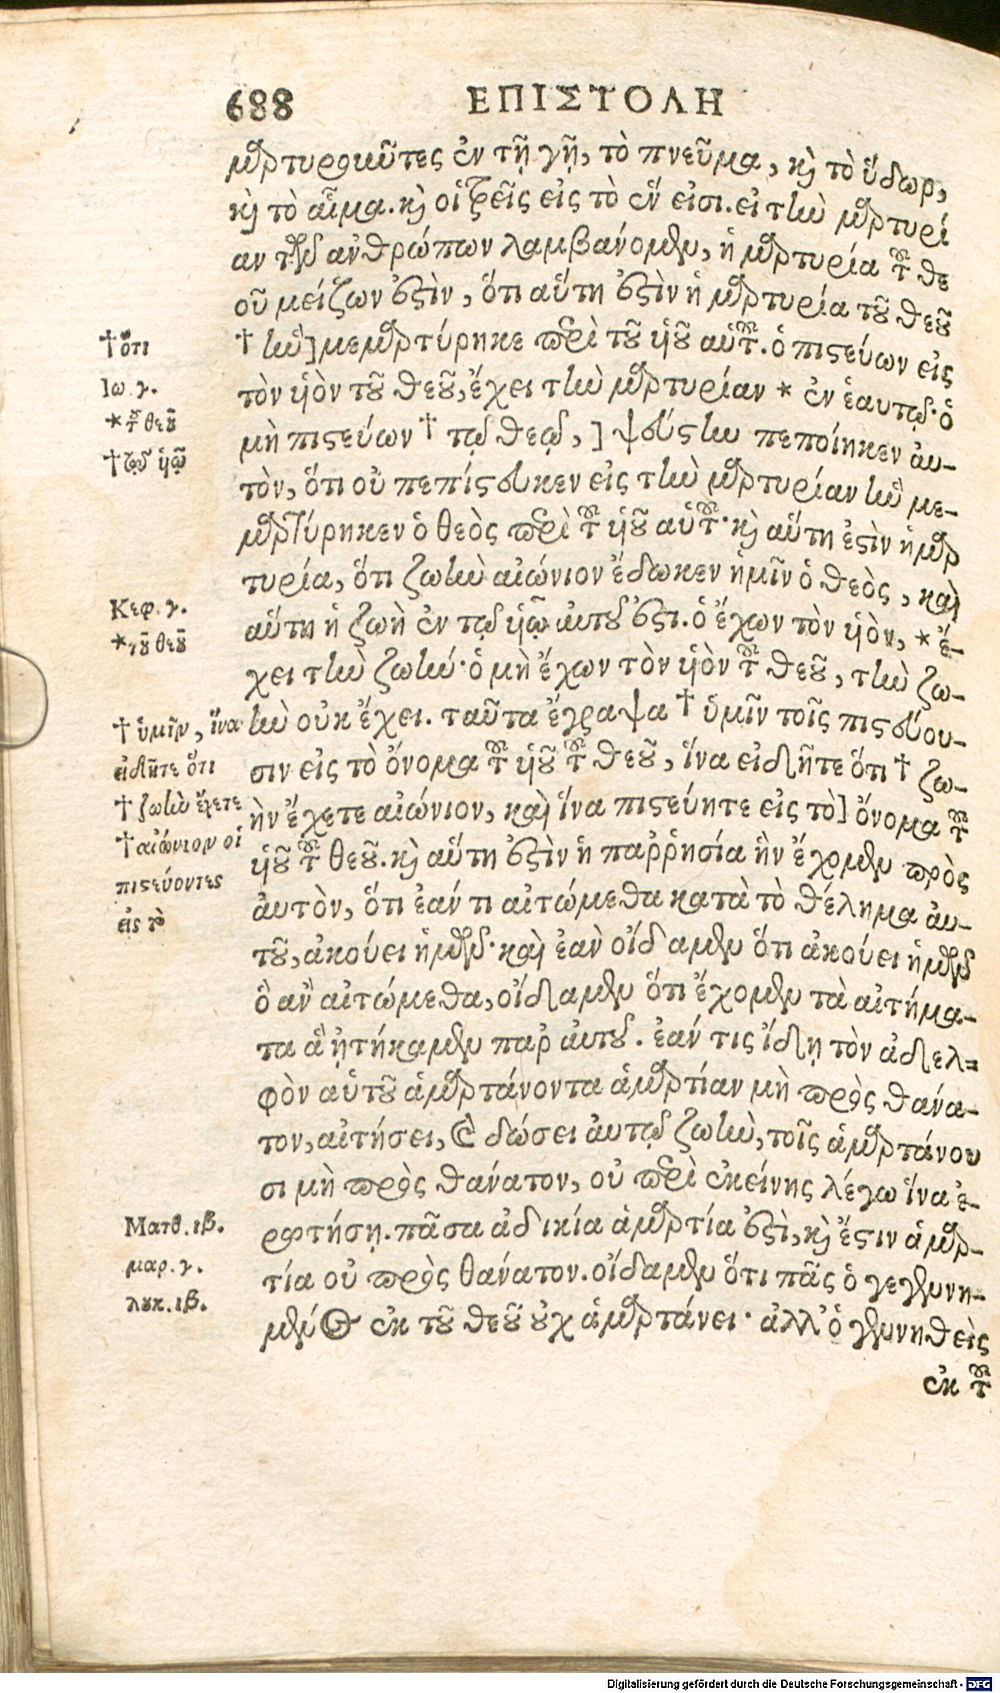 688 ΕΠΙΣΤΟΛΗ
μαρτυροῦντες ἐν τῇ γῇ, τὸ πνεῦμα, κὶ τὸ ὕδωρ,
κὶ τὸ αἷμα. κὶ οἱ τρεῖς εἰς τὸ ἕν εἰσι. εἰ τὴν μαρτυρί
αν τῶν ἀνθρώπων λαμβάνομεν, ἡ μαρτυρία τοῦ θε
οῦ μείζων ἐστὶν, ὅτι αὕτη ἐστὶν ἡ μαρτυρία τοῦ θεοῦ
† ὅτι
† ἣν] μεμαρτύρηκε περὶ τοῦ ὑιοῦ αὑτοῦ. ὁ πιστεύων εἰς
Ιω. γ.
τὸν ὑιὸν τοῦ θεοῦ, ἔχει τὴν μαρτυρίαν * ἐν ἑαυτῷ· ὁ
* τοῦ θεοῦ
μὴ πιστεύων † τῷ θεῷ, ] ψεύστην πεποίηκεν ἀυ-
† τῷ ὑιῷ
τὸν, ὅτι οὐ πεπίστευκεν εἰς τὴν μαρτυρίαν ἣν με-
μαρτύρηκεν ὁ θεὸς περὶ τοῦ ὑιοῦ αὑτοῦ· κὶ αὕτη ἐστὶν ἡ μαρ
τυρία, ὅτι ζωὴν αἰώνιον ἔδωκεν ἡμῖν ὁ θεὸς, καὶ
Κεφ. γ.
αὕτη ἡ ζωὴ ἐν τῷ ὑιῷ ἀυτοῦ ἐστι. ὁ ἔχων τὸν ὑιὸν, * ἔ-
* τοῦ θεοῦ
χει τὴν ζωήν· ὁ μὴ ἔχων τὸν ὑιὸν τοῦ θεοῦ, τὴν ζω-
† ὑμῖν, ἵνα
ὴν οὐκ ἔχει. ταῦτα ἔγραψα † ὑμῖν τοῖς πιστεύου-
εἰδῆτε ὅτι
σιν εἰς τὸ ὄνομα τοῦ ὑιοῦ τοῦ θεοῦ, ἵνα εἰδῆτε ὅτι † ζω-
† ζωὴν ἔχετε
ὴν ἔχετε αἰώνιον, καὶ ἵνα πιστεύητε εἰς τὸ] ὄνομα τοῦ
† αἰώνιον οἱ
ὑιοῦ τοῦ θεοῦ. κὶ αὕτη ἐστὶν ἡ παῤῥησία ἣν ἔχομεν πρὸς
πιστεύοντες
ἀυτὸν, ὅτι ἐάν τι αἰτώμεθα κατὰ τὸ θέλημα ἀυ-
εἰς τὸ
τοῦ, ἀκούει ἡμῶν· καὶ ἐὰν οἴδαμεν ὅτι ἀκούει ἡμῶν
ὃ ἂν αἰτώμεθα, οἴδαμεν ὅτι ἔχομεν τὰ αἰτήμα-
τα ἃ ᾐτήκαμεν παρ ἀυτοῦ. ἐάν τις ἴδῃ τὸν ἀδελ-
φὸν αὑτοῦ ἁμαρτάνοντα ἁμαρτίαν μὴ πρὸς θάνα-
τον, αἰτήσει, & δώσει ἀυτῷ ζωὴν, τοῖς ἁμαρτάνου
σι μὴ πρὸς θάνατον, οὐ περὶ ἐκείνης λέγω ἵνα ἐ-
Ματθ. ιβ.
ρωτήσῃ. πᾶσα ἀδικία ἁμαρτία ἐστὶ, κὶ ἔστιν ἁμαρ-
μαρ. γ.
τία οὐ πρὸς θάνατον. οἴδαμεν ὅτι πᾶς ὁ γεγεννη-
λουκ. ιβ.
μένος ἐκ τοῦ θεοῦ οὐχ ἁμαρτάνει· ἀλλ' ὁ γεννηθεὶς
ἐκ τοῦ
Digitalisierung gefördert durch die Deutsche Forschungsgemeinschaft - DFG